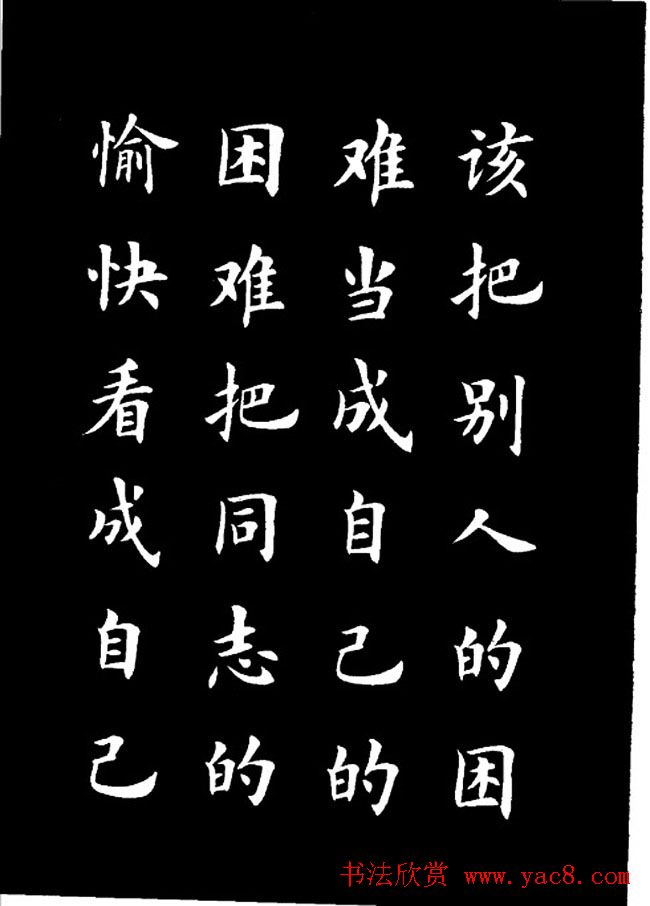 该把别人的困
难当成自己的
困难把同志的
愉快看成自己
书法欣赏 www.yac8.com